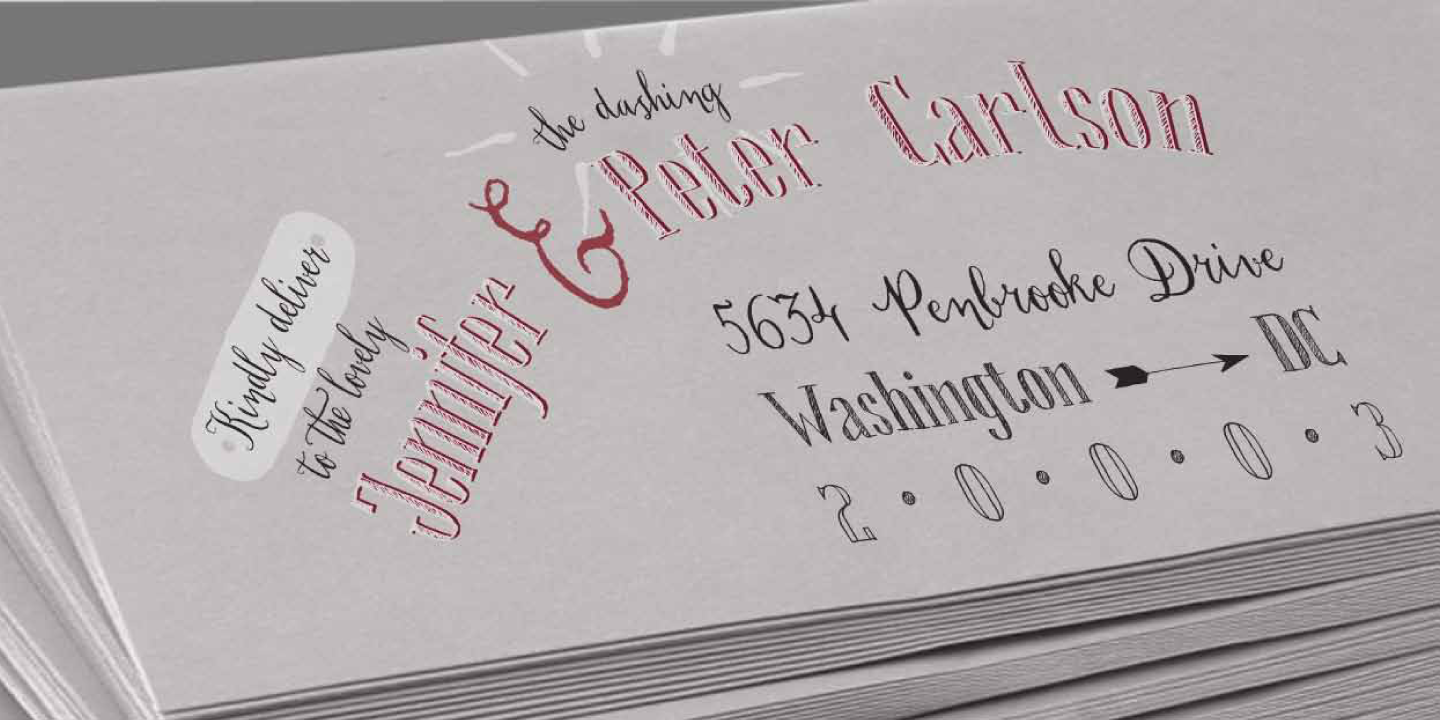 Kindly deliver
to the lovely
Jennifer
&
the dashing
Peter Carlson
5634 Penbrooke Drive
Washington DC
2 • 0 • 0 • 0 • 3